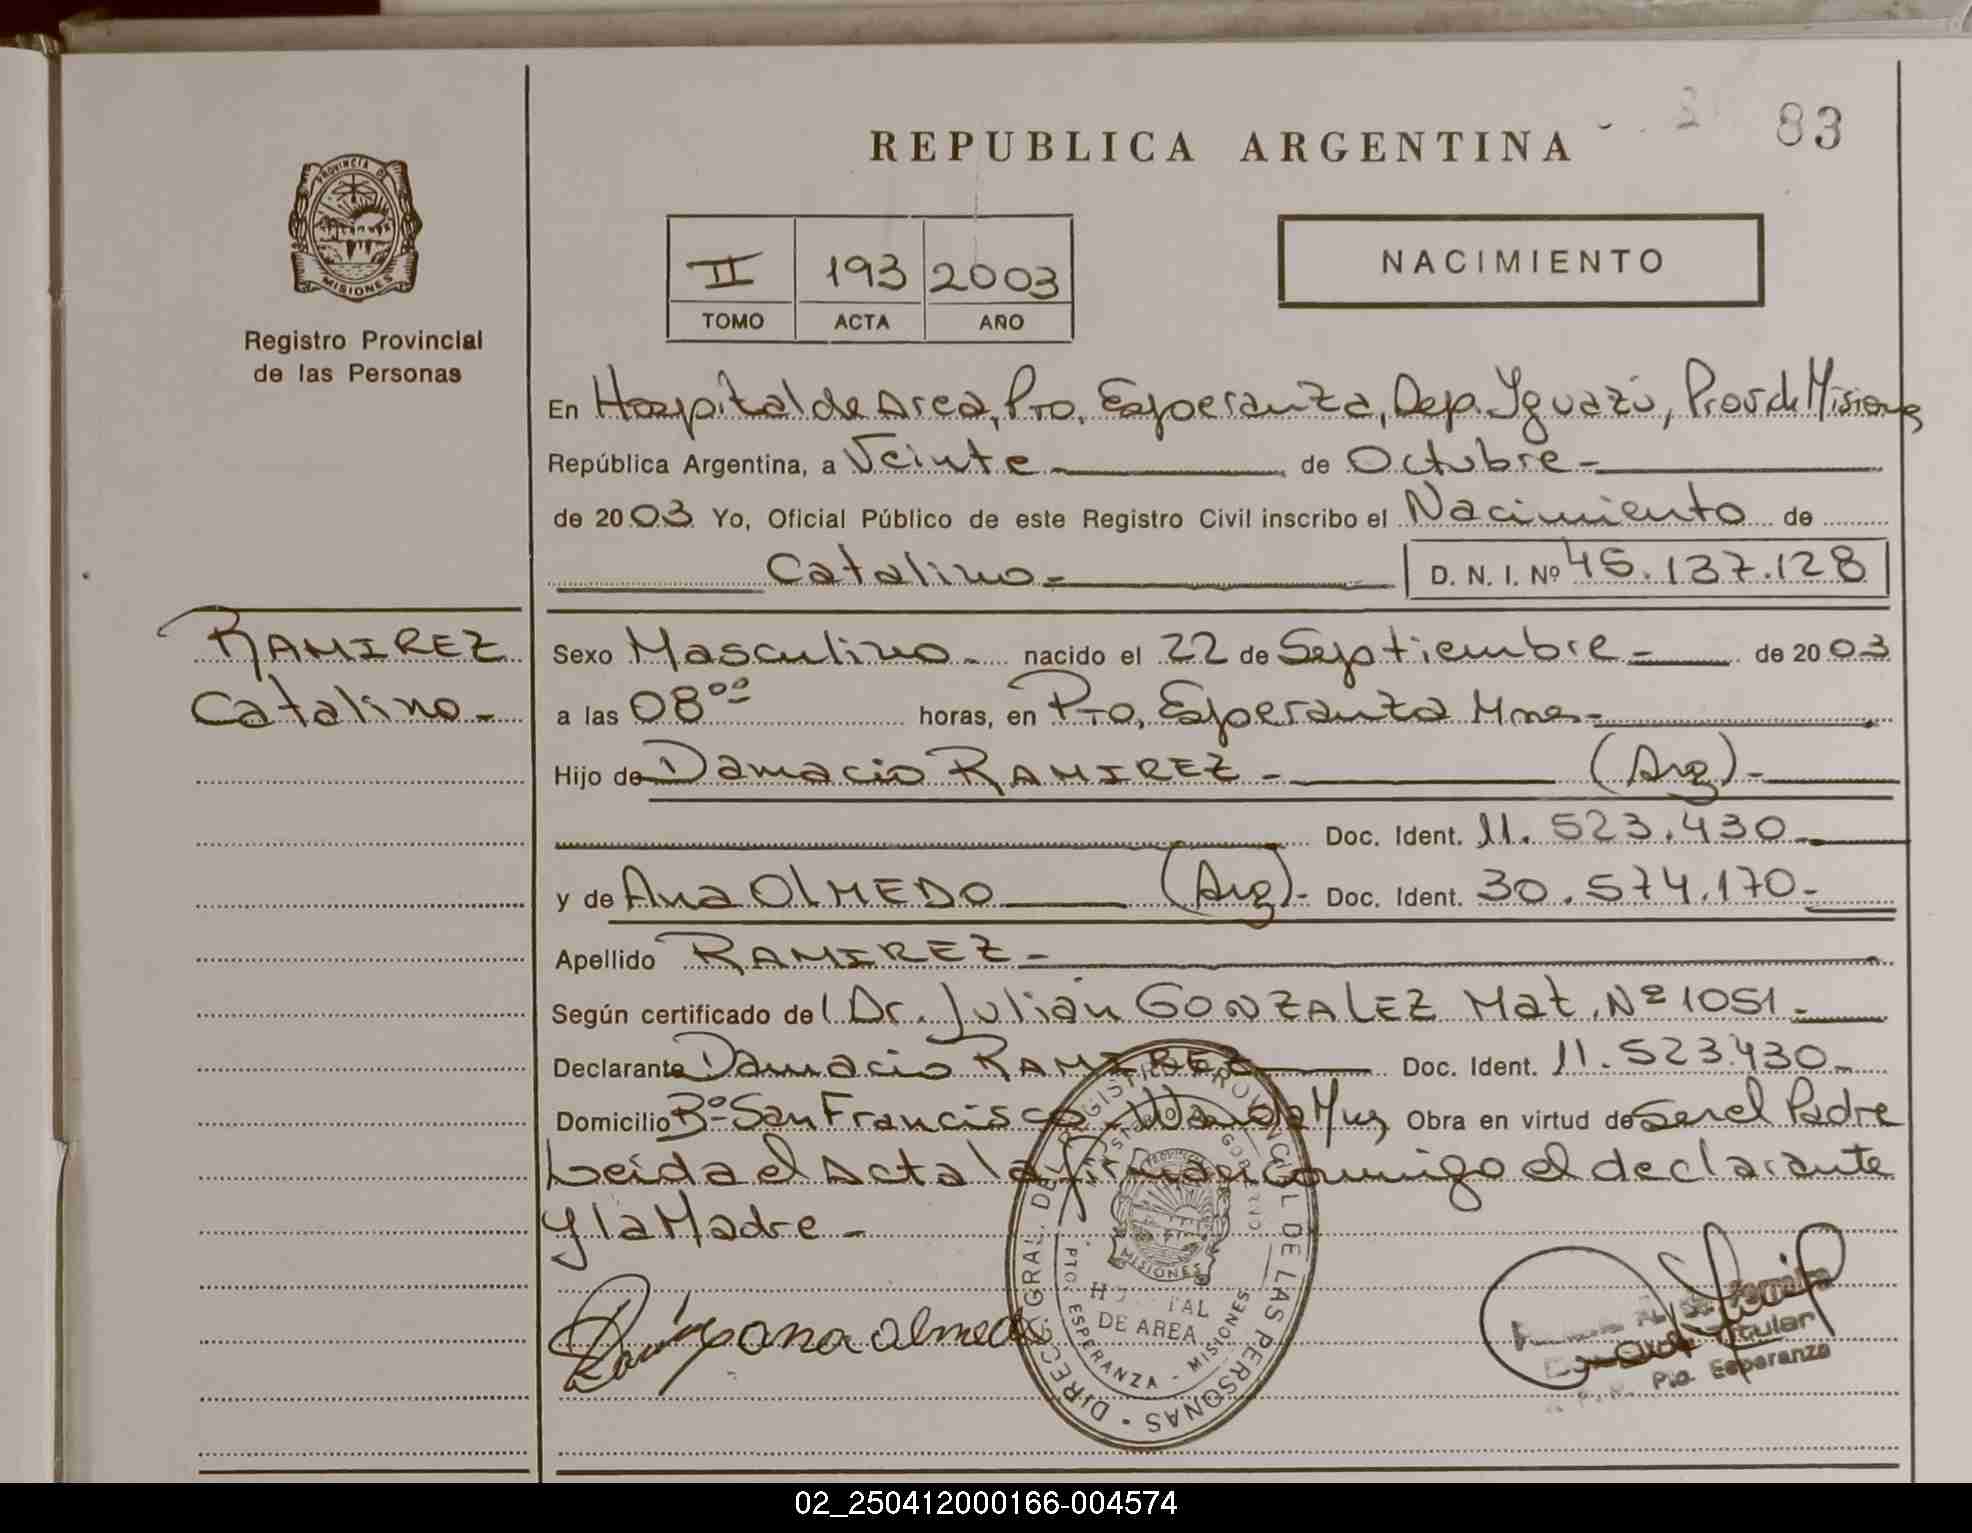 REPUBLICA ARGENTINA
83
PROVINCIA DE
MISIONES
Registro Provincial
de las Personas
II 193 2003
TOMO ACTA AÑO
NACIMIENTO
En Hospital de Area, Pto. Esperanza, Dep. Iguazú, Prov de Misiones
República Argentina, a Veinte de Octubre
de 2003 Yo, Oficial Público de este Registro Civil inscribo el Nacimiento de
Catalino D. N. I. Nº 45.137.128
RAMIREZ
Catalino
Sexo Masculino nacido el 22 de Septiembre de 2003
a las 08⁰⁰ horas, en Pto. Esperanza Mnes
Hijo de Damacio RAMIREZ (Arg)
Doc. Ident. 11.523.430
y de Ana OLMEDO (Arg) Doc. Ident. 30.574.170
Apellido RAMIREZ
Según certificado de Dr. Julián GONZALEZ Mat. Nº 1051
Declarante Damacio RAMIREZ Doc. Ident. 11.523.430
Domicilio Bº San Francisco - Wanda Obra en virtud de Ser el Padre
Leída el Acta la firman conmigo el declarante
y la Madre
ana olmedo
DIRECC. GRAL. DEL REGISTRO PROVINCIAL DE LAS PERSONAS
MISIONES
DE AREA
PTO. ESPERANZA - MISIONES
Titular
Pto. Esperanza
02_250412000166-004574